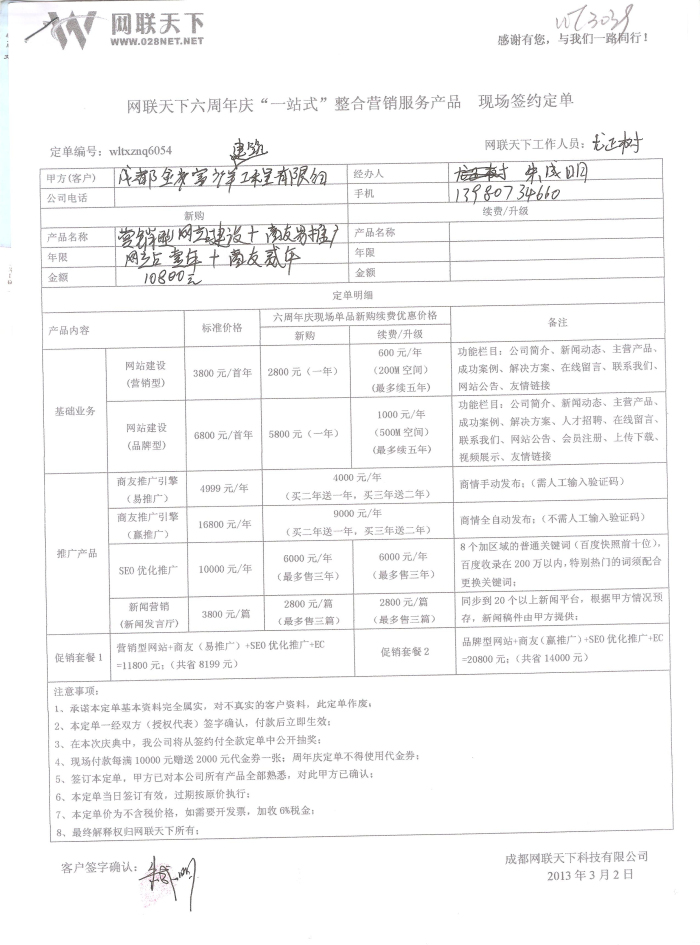 网联天下
WWW.028NET.NET
感谢有您，与我们一路同行！
网联天下六周年庆“一站式”整合营销服务产品 现场签约定单
定单编号：wltxznq6054
网联天下工作人员：
甲方(客户)
成都
有限公司
经办人
朱成明
公司电话
手机
13980734660
新购
续费/升级
产品名称
营销型网站建设＋商友易推广
产品名称
年限
网站壹年＋商友贰年
年限
金额
10800元
金额
定单明细
产品内容
标准价格
六周年庆现场单品新购续费优惠价格
备注
新购
续费/升级
基础业务
网站建设
(营销型)
3800元/首年
2800元（一年）
600元/年
(200M空间)
(最多续五年)
功能栏目：公司简介、新闻动态、主营产品、
成功案例、解决方案、在线留言、联系我们、
网站公告、友情链接
网站建设
(品牌型)
6800元/首年
5800元（一年）
1000元/年
(500M空间)
(最多续五年)
功能栏目：公司简介、新闻动态、主营产品、
成功案例、解决方案、人才招聘、在线留言、
联系我们、网站公告、会员注册、上传下载、
视频展示、友情链接
推广产品
商友推广引擎
（易推广）
4999元/年
4000元/年
（买二年送一年，买三年送二年）
商情手动发布；（需人工输入验证码）
商友推广引擎
（赢推广）
16800元/年
9000元/年
（买二年送一年，买三年送二年）
商情全自动发布；（不需人工输入验证码）
SEO优化推广
10000元/年
6000元/年
（最多售三年）
6000元/年
（最多售三年）
8个加区域的普通关键词（百度快照前十位），
百度收录在200万以内；特别热门的词须配合
更换关键词；
新闻营销
(新闻发言厅)
3800元/篇
2800元/篇
（最多售三篇）
2800元/篇
（最多售三篇）
同步到20个以上新闻平台，根据甲方情况预
存，新闻稿件由甲方提供；
促销套餐1
营销型网站+商友（易推广）+SEO优化推广+EC
=11800元；（共省8199元）
促销套餐2
品牌型网站+商友(赢推广）+SEO优化推广+EC
=20800元；（共省14000元）
注意事项：
1、承诺本定单基本资料完全属实，对不真实的客户资料，此定单作废；
2、本定单一经双方（授权代表）签字确认，付款后立即生效；
3、在本次庆典中，我公司将从签约付全款定单中公开抽奖；
4、现场付款每满10000元赠送2000元代金券一张；周年庆定单不得使用代金券；
5、签订本定单，甲方已对本公司所有产品全部熟悉，对此甲方已确认；
6、本定单当日签订有效，过期按原价执行；
7、本定单价为不含税价格，如需要开发票，加收6%税金；
8、最终解释权归网联天下所有；
客户签字确认：
成都网联天下科技有限公司
2013年3月2日